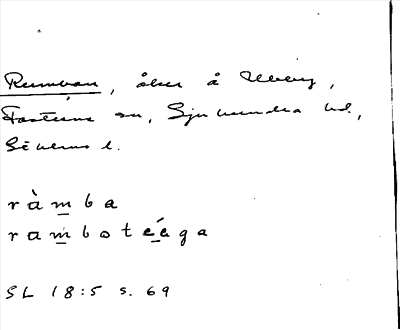 Rumban, åker å Ulberg,
Fasterna sn, Sjuhundra hd,
Sthlms l.
ràmba
rambotééga
SL 18:5 s. 69